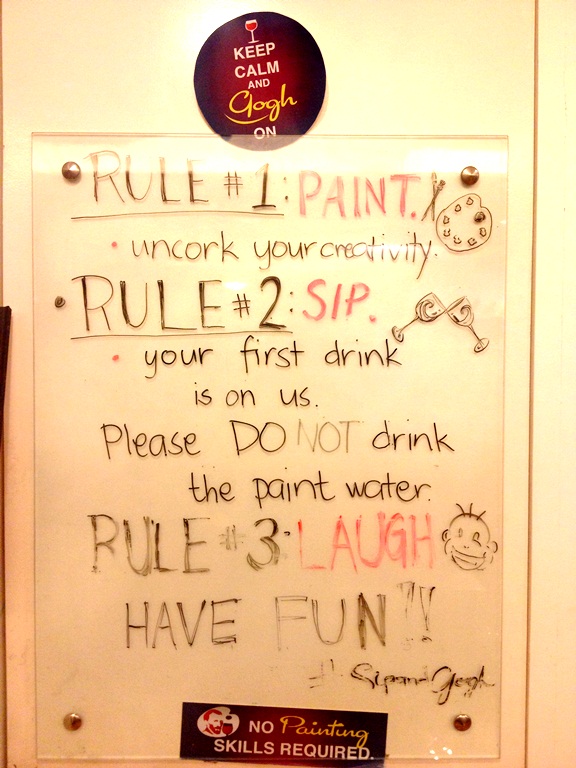 KEEP
CALM
AND
Gogh
ON
RULE #1: PAINT.
• uncork your creativity.
RULE #2: SIP.
• your first drink
is on us.
Please DO NOT drink
the paint water.
RULE #3: LAUGH
HAVE FUN!!
# Sip and Gogh
NO Painting
SKILLS REQUIRED.